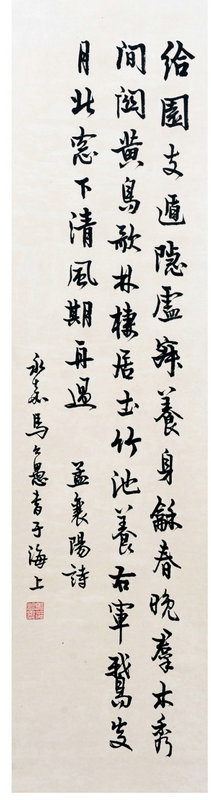 給園支遁隱虛寂養身龢春晚羣木秀
間關黃鳥歌林棲居士竹池養右軍鵞炎
月北窓下清風期再過 孟襄陽詩
永嘉馬公愚書于海上